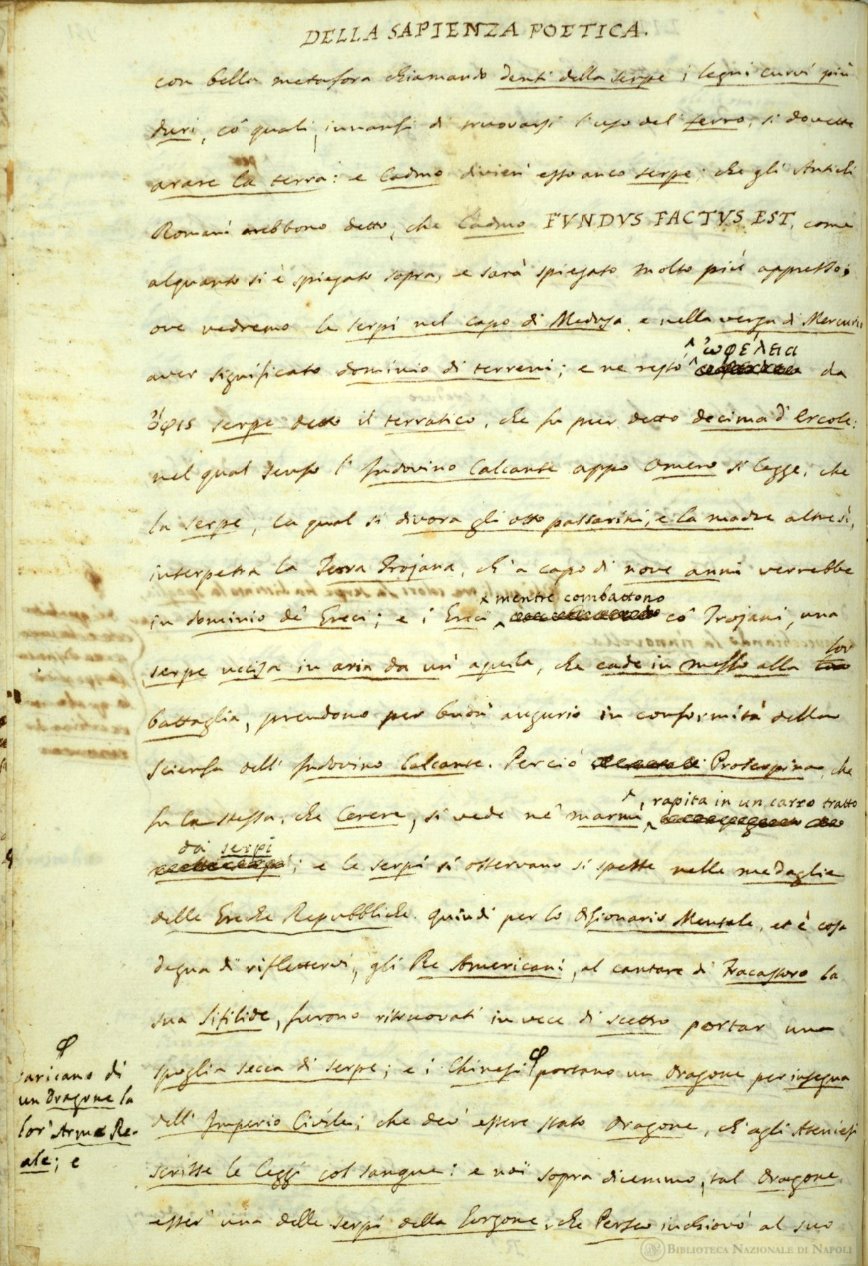 DELLA SAPIENZA POETICA.
con bella metafora chiamando denti della serpe i legni curvi più
duri, co' quali, innanzi di truovarsi l'uso del ferro, si dovette
arare la terra: e Cadmo divien esso anco serpe: che gli Antichi
Romani arebbono detto, che Cadmo FVNDVS FACTVS EST, come
alquanto si è spiegato sopra, e sarà spiegato molto più appresso;
ove vedremo le serpi nel capo di Medusa, e nella verga di Mercurio
^ ὠφέλεια
aver significato dominio di terreni; e ne restò ^ da
ὄφις serpe detto il terratico, che fu pur detto decima d'Ercole:
nel qual senso l'Indovino Calcante appo Omero si legge, che
la serpe, la qual si divora gli otto passarini, e la madre altresì,
interpetra la Terra Trojana, ch'a capo di nove anni verrebbe
^ mentre combattono
in dominio de' Greci; e i Greci ^ co' Trojani, una
lor
serpe uccisa in aria da un'aquila, che cade in mezzo alla
battaglia, prendono per buon augurio in conformità della
scienza dell'Indovino Calcante. Perciò Proserpina, che
^, rapita in un carro tratto
fu la stessa, che Cerere, si vede ne' marmi ^
da serpi
; e le serpi si osservano sì spesse nelle medaglie
delle Greche Repubbliche. quindi per lo Dizionario Mentale, et è cosa
degna di riflettervi, gli Re Americani, al cantare di Fracastoro la
sua Sifilide, furono ritruovati in vece di scettro portar una
spoglia secca di serpe; e i Chinesi φ portano un dragone per insegna
dell'Imperio Civile; che dev' essere stato Dragone, ch'agli Ateniesi
scrisse le leggi col sangue: e noi sopra dicemmo, tal Dragone
esser una delle serpi della Gorgone, che Perseo inchiovò al suo
φ
caricano di
un Dragone la
lor' Arma Re-
ale; e
BIBLIOTECA NAZIONALE DI NAPOLI